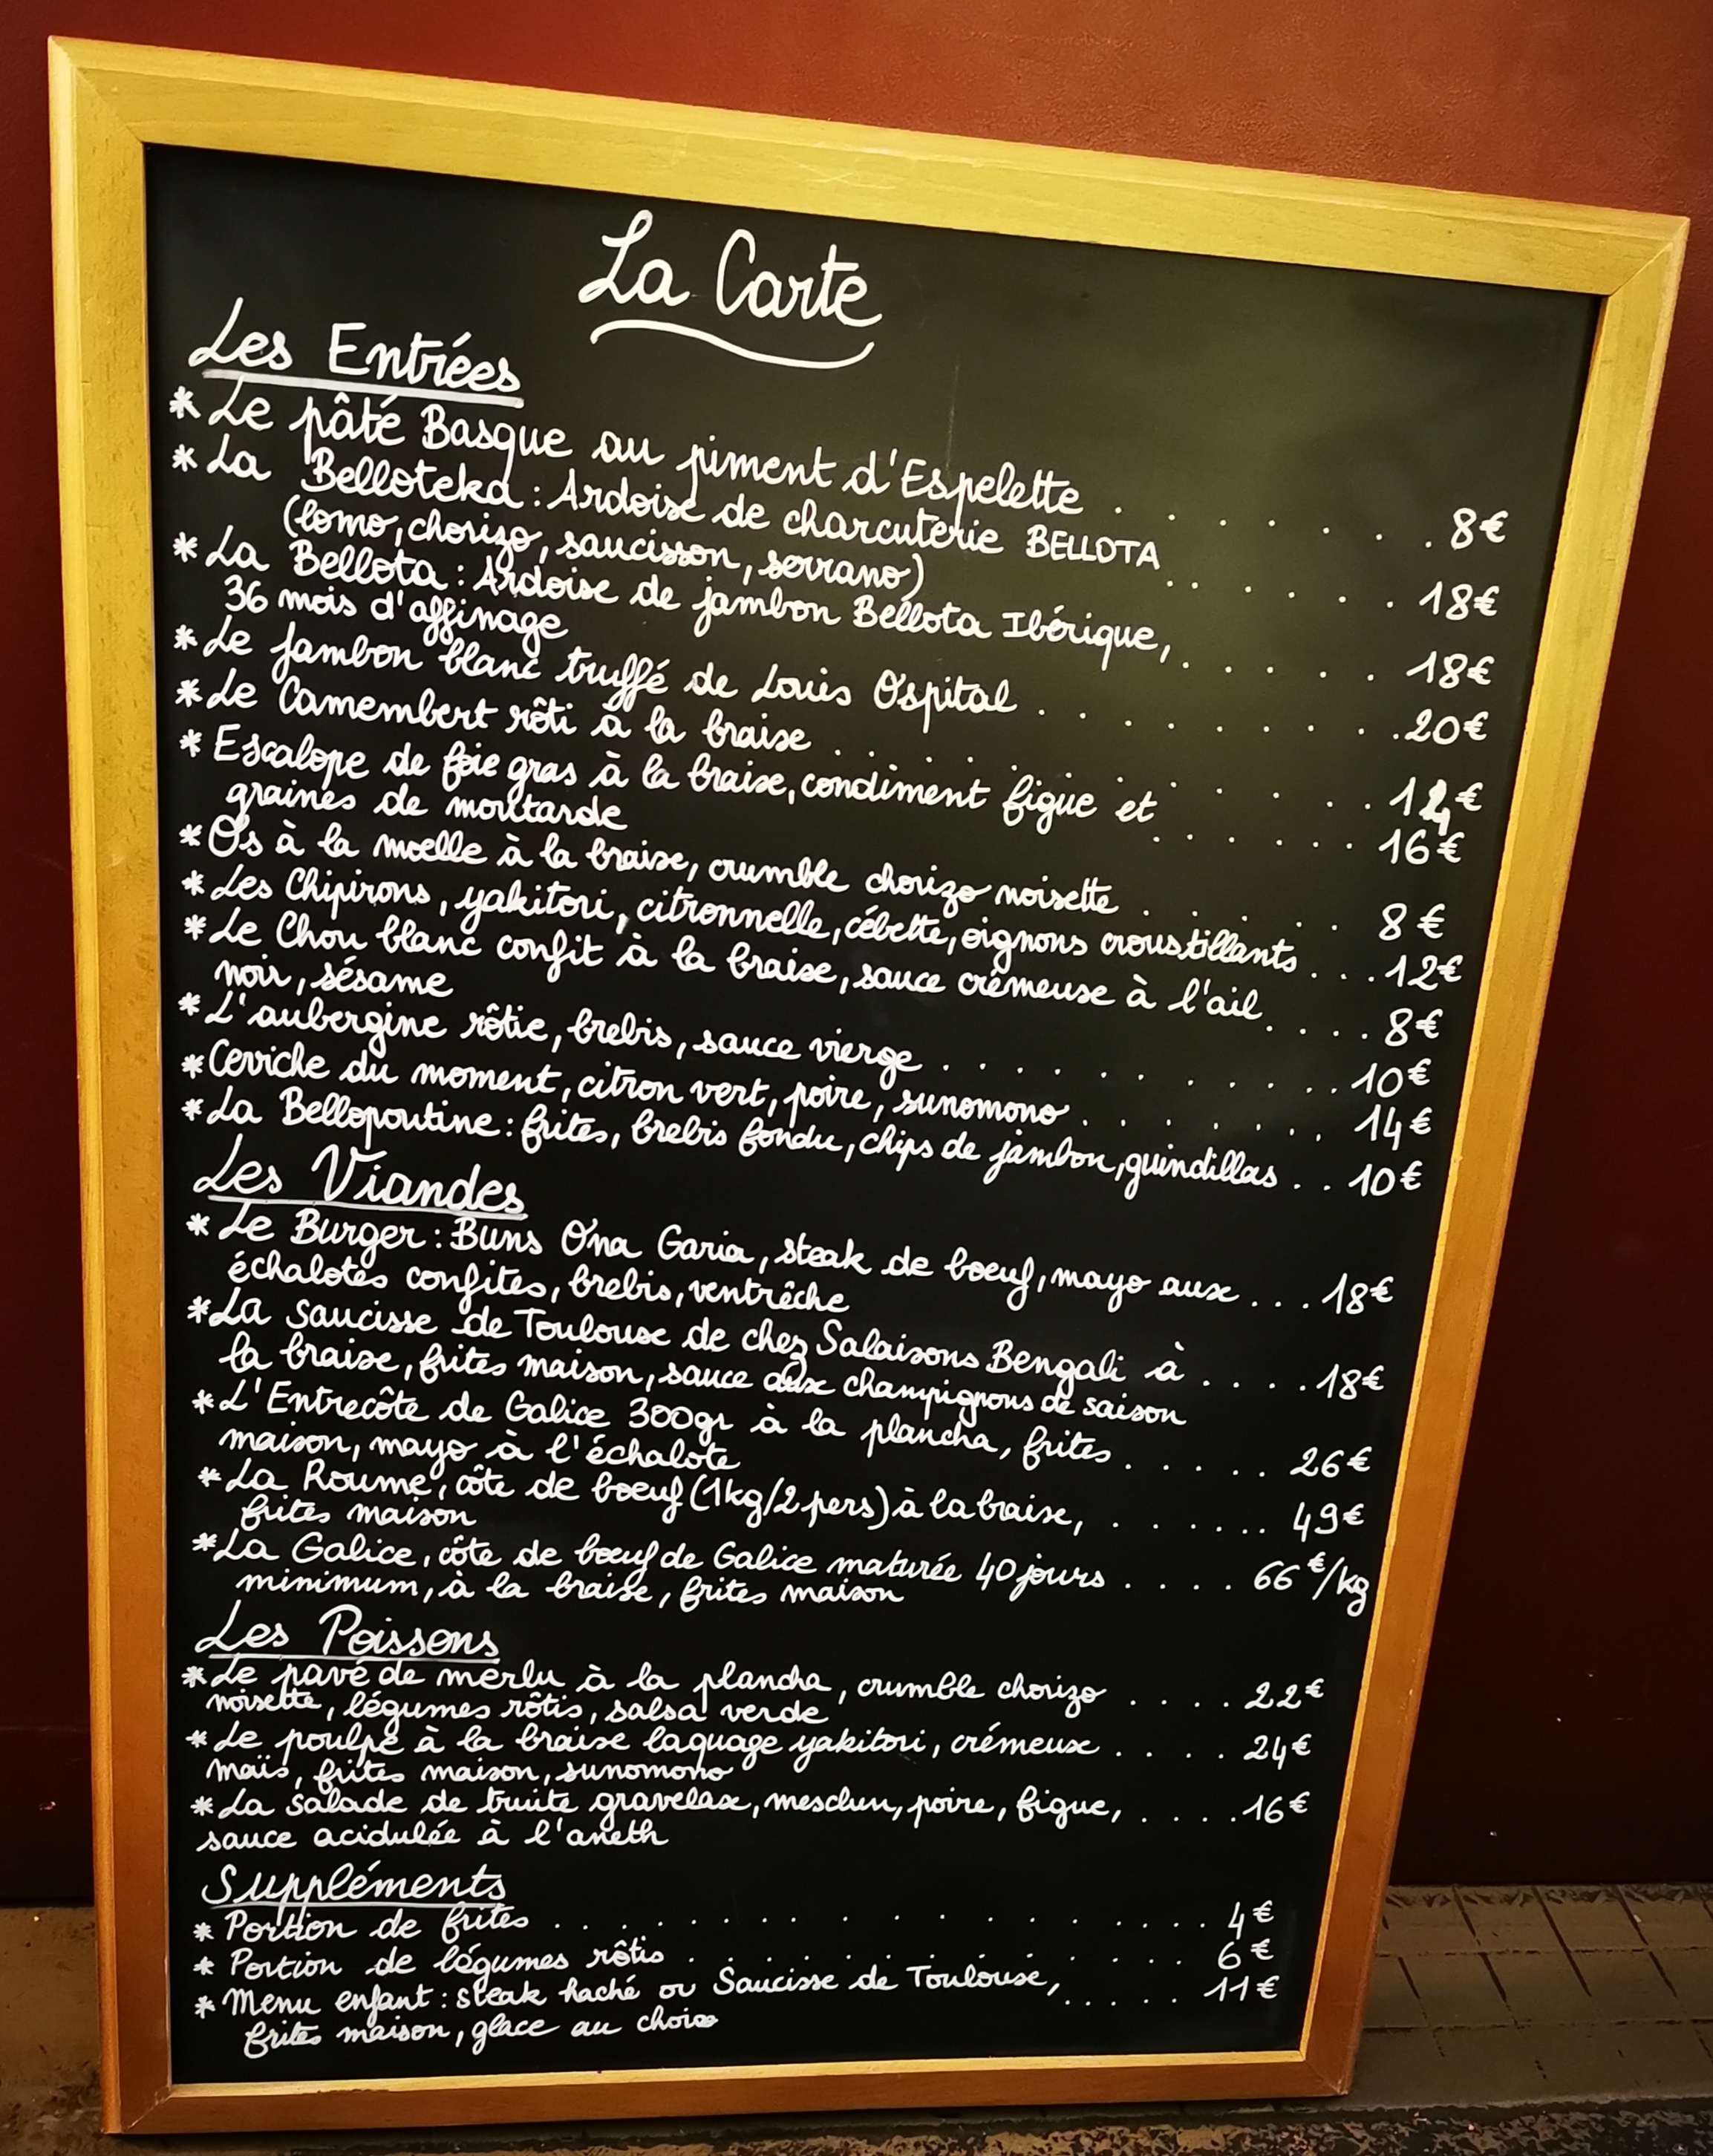 La Carte
Les Entrées
* Le pâté Basque au piment d'Espelette . . . . . . . 8€
* La Belloteka : Ardoise de charcuterie BELLOTA
(lomo, chorizo, saucisson, serrano) . . . . . . 18€
* La Bellota : Ardoise de jambon Bellota Ibérique, . . . . . 18€
36 mois d'affinage
* Le jambon blanc truffé de Louis Ospital . . . . . . . . 20€
* Le Camembert rôti à la braise . . . . . . . . . . €
* Escalope de foie gras à la braise, condiment figue et . . . . . . 16€
graines de moutarde
* Os à la moelle à la braise, crumble chorizo noisette . . . . . 8€
* Les Chipirons, yakitori, citronnelle, cébette, oignons croustillants . . . 12€
* Le Chou blanc confit à la braise, sauce crémeuse à l'ail . . . . 8€
noir, sésame
* L'aubergine rôtie, brebis, sauce vierge . . . . . . . . . . 10€
* Ceviche du moment, citron vert, poire, sunomono . . . . . . . 14€
* La Bellopoutine : frites, brebis fondu, chips de jambon, guindillas . . 10€
Les Viandes
* Le Burger : Buns Ona Garia, steak de boeuf, mayo aux . . . 18€
échalotes confites, brebis, ventrêche
* La saucisse de Toulouse de chez Salaisons Bengali à . . . . 18€
la braise, frites maison, sauce aux champignons de saison
* L'Entrecôte de Galice 300gr à la plancha, frites . . . . . 26€
maison, mayo à l'échalote
* La Roume, côte de boeuf (1kg/2 pers) à la braise, . . . . . . 49€
frites maison
* La Galice, côte de boeuf de Galice maturée 40 jours . . . . 66€/kg
minimum, à la braise, frites maison
Les Poissons
* Le pavé de merlu à la plancha, crumble chorizo . . . . 22€
noisette, légumes rôtis, salsa verde
* Le poulpe à la braise laquage yakitori, crémeux . . . . 24€
maïs, frites maison, sunomono
* La salade de truite gravelax, mesclun, poire, figue, . . . . 16€
sauce acidulée à l'aneth
Suppléments
* Portion de frites . . . . . . . . . . . . . . . 4€
* Portion de légumes rôtis . . . . . . . . . . . 6€
* Menu enfant : steak haché ou Saucisse de Toulouse, . . . . . 11€
frites maison, glace au choix